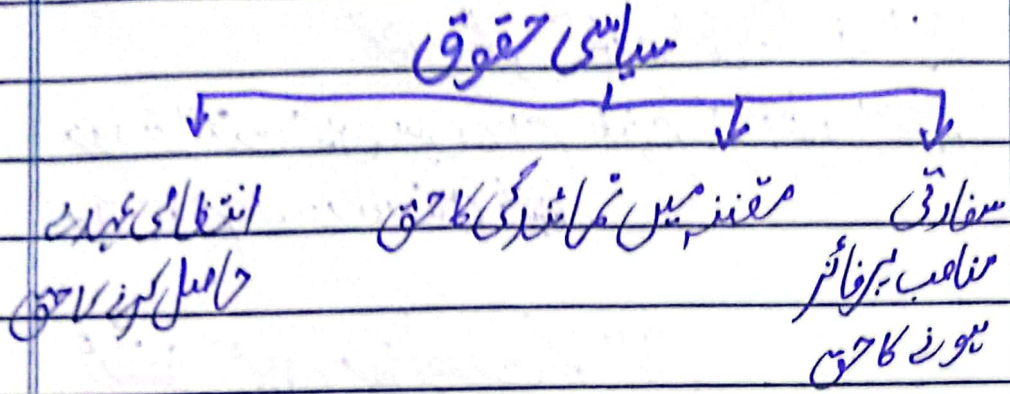 سیاسی حقوق
سفارتی
مناصب پر فائز
ہونے کا حق
مقننہ میں نمائندگی کا حق
انتظامی عہدے
حاصل کرنے کا حق